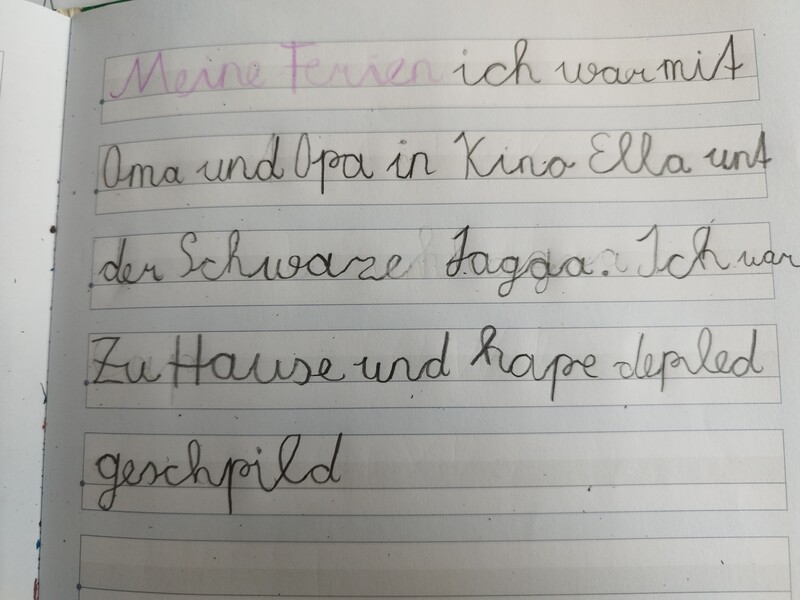 Meine Ferien ich war mit
Oma und Opa in Kino Ella unt
der Schwaze Jagga. Ich war
Zu Hause und hape depled
geschpild